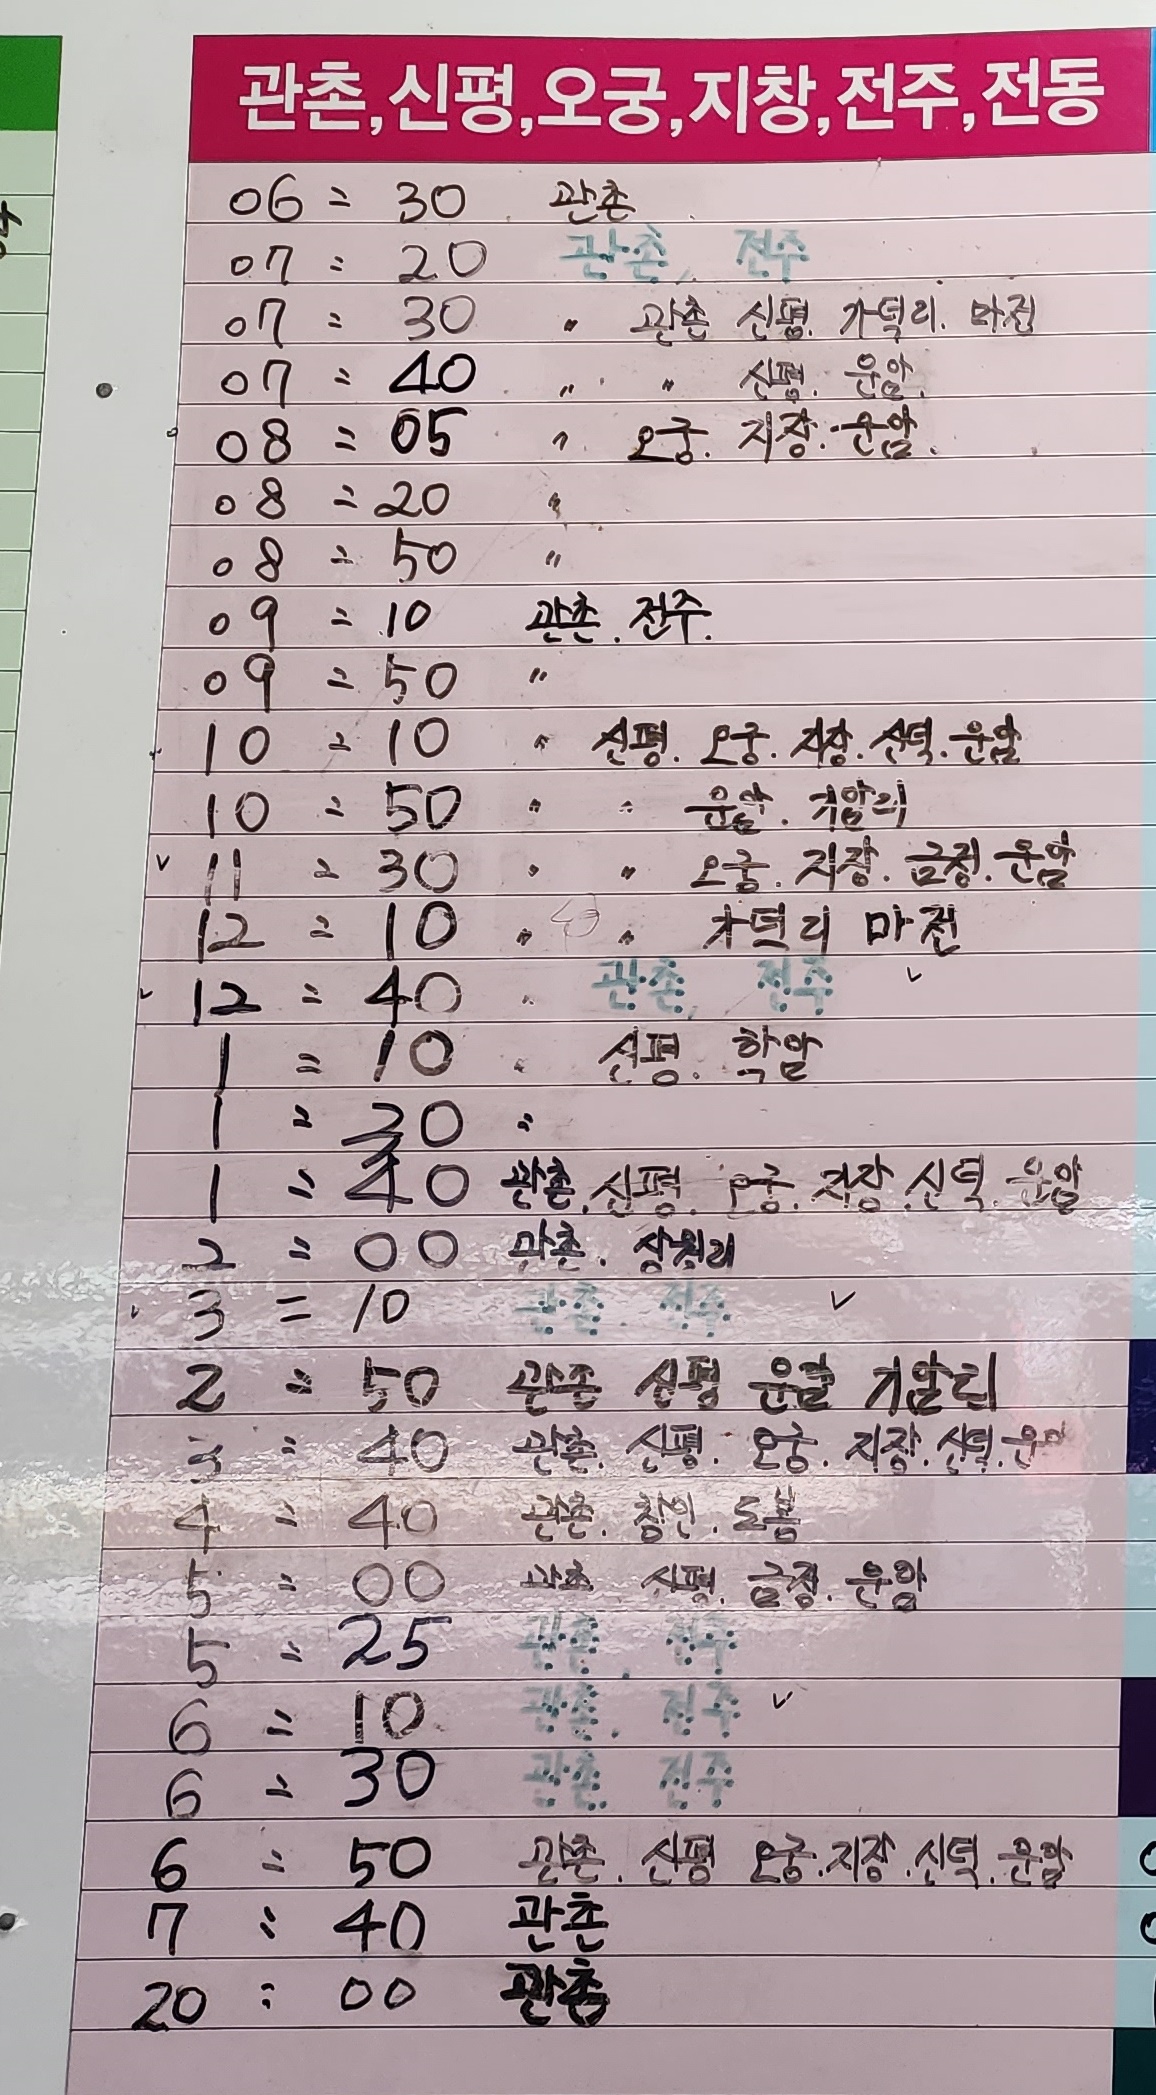 관촌,신평,오궁,지창,전주,전동
06 = 30 관촌
07 = 20 관촌, 전주
07 = 30 〃 관촌 신평. 가덕리. 마전
07 = 40 〃 〃 신평. 운암.
08 = 05 〃 오궁. 지장. 운암.
08 = 20 〃
08 = 50 〃
09 = 10 관촌. 전주.
09 = 50 〃
10 = 10 〃 신평. 오궁. 지장. 신덕. 운암
10 = 50 〃 〃 운암. 기암리
11 = 30 〃 〃 오궁. 지장. 금정. 운암
12 = 10 〃 〃 가덕리 마전
12 = 40 관촌, 전주
1 = 10 신평. 학암
1 = 20 〃
1 = 40 관촌. 신평. 오궁. 지장. 신덕. 운암
2 = 00 관촌. 상월리
3 = 10 관촌. 전주
2 = 50 관촌 신평 운암 기암리
3 = 40 관촌. 신평. 오궁. 지장. 신덕. 운암
4 = 40 관촌. 창인. 도봉
5 = 00 관촌 신평. 금정. 운암
5 = 25 관촌, 전주
6 = 10 관촌, 전주
6 = 30 관촌, 전주
6 = 50 관촌. 신평 오궁. 지장. 신덕. 운암
7 : 40 관촌
20 : 00 관촌